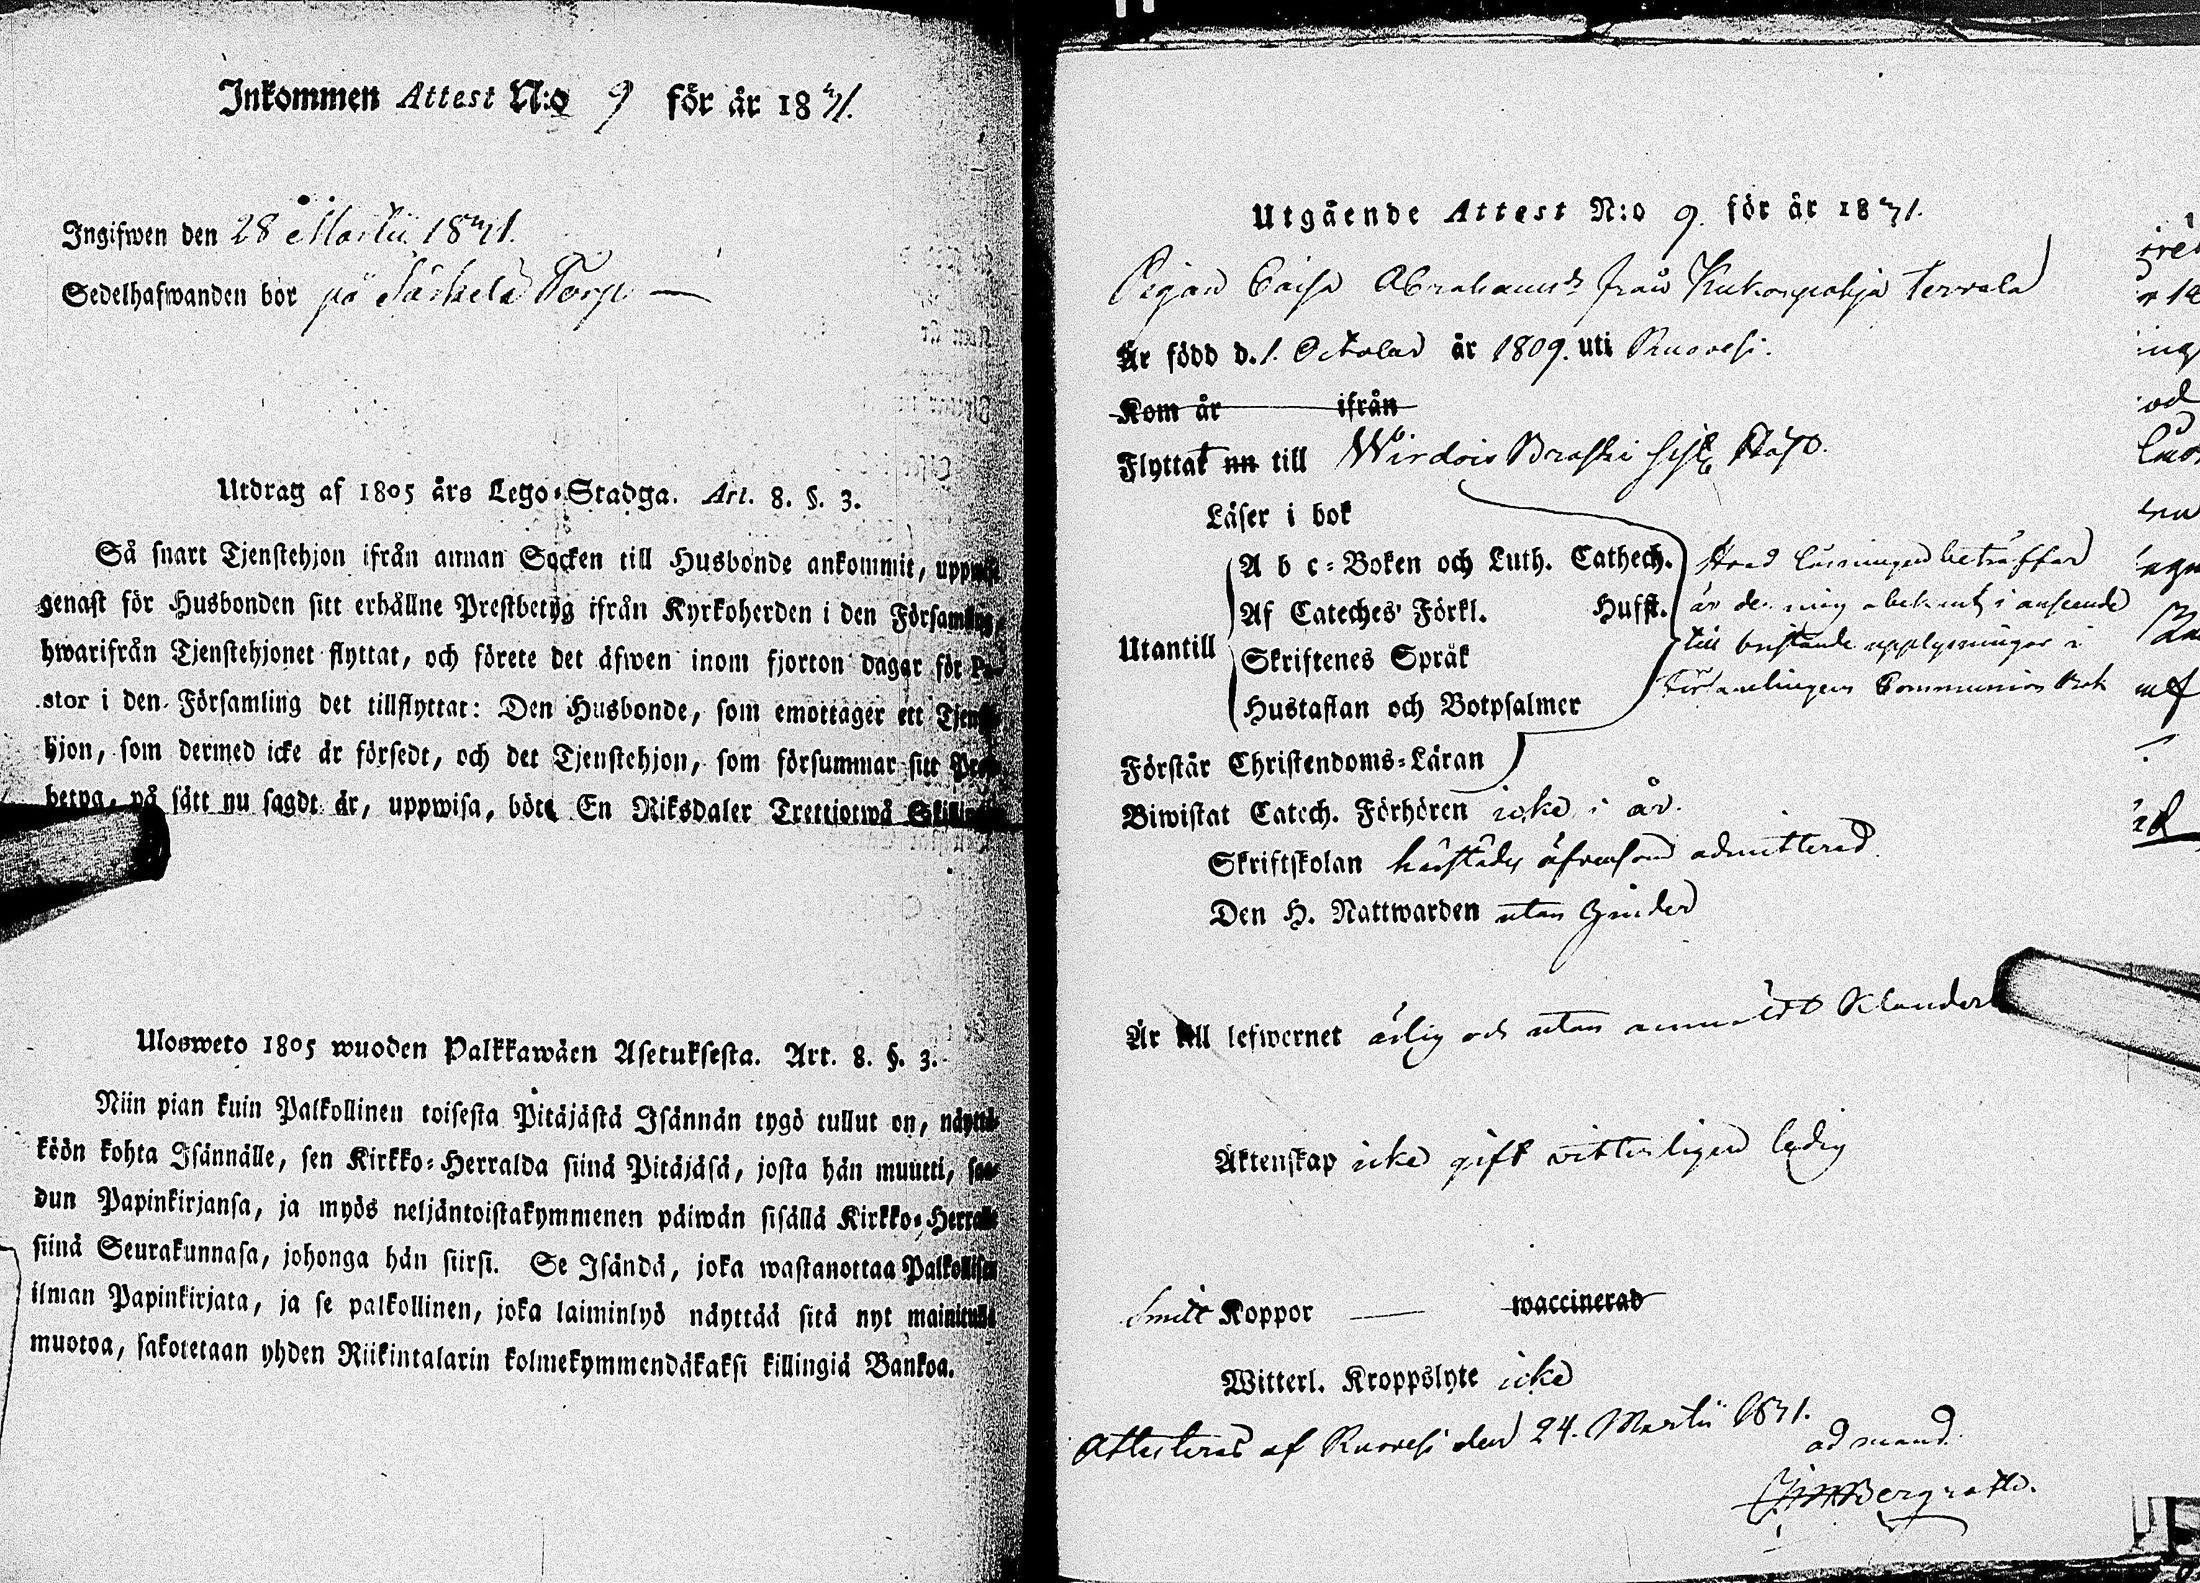 Inkommen Attest N:o 9 för år 1841.
Ingifwen den 28 Martii 1841.
Sedelhafwanden bor på Särkelä Torp —
Utdrag af 1805 års Lego-Stadga. Art. 8. §. 3.
Så snart Tjenstehjon ifrån annan Socken till Husbonde ankommit, uppwise
genast för Husbonden sitt erhållne Prestbetyg ifrån Kyrkoherden i den Församling,
hwarifrån Tjenstehjonet flyttat, och förete det äfwen inom fjorton dagar för Pa-
stor i den Församling det tillflyttat: Den Husbonde, som emottager ett Tjenste-
hjon, som dermed icke är försedt, och det Tjenstehjon, som försummar sitt Prest-
betyg, på sätt nu sagdt är, uppwisa, böte En Riksdaler Trettiotwå Skilling
Ulosweto 1805 wuoden Palkkawäen Asetuksesta. Art. 8. §. 3.
Niin pian kuin Palkollinen toisesta Pitäjästä Isännän tygö tullut on, näyttä-
köön kohta Isännälle, sen Kirkko-Herralda siinä Pitäjäsä, josta hän muutti, saa-
dun Papinkirjansa, ja myös neljäntoistakymmenen päiwän sisällä Kirkko-Herralle
siinä Seurakunnasa, johonga hän siirsi. Se Isändä, joka wastanottaa Palkollisen
ilman Papinkirjata, ja se palkollinen, joka laiminlyö näyttää sitä nyt mainitulla
muotoa, sakotetaan yhden Riikintalarin kolmekymmendäkaksi killingiä Bankoa.
Utgående Attest N:o 9 för år 1841.
Pigan Caisa Abrahamsdr från Kukonpohja Terrala
Är född d. 1. October år 1809. uti Ruovesi.
Kom år ifrån
Flyttat nu till Wirdois
Läser i bok
A b c-Boken och Luth. Cathech.
Af Cateches' Förkl. Hufst.
Utantill
Skriftenes Språk
Hustaflan och Botpsalmer
Hvad läsningen beträffar
är den mig obekant i anseende
till bristande upplysningar i
Församlingens Communion Bok
Förstår Christendoms-Läran
Biwistat Catech. Förhören icke i år.
Skriftskolan härstädes äfvensom admitterad
Den H. Nattwarden utan hinder
Är till lefwernet ärlig och utan anmärkt klander
Äktenskap icke gift vitterligen ledig
Smitt Koppor — waccinerad
Witterl. Kroppslyte icke
Attesteras af Ruovesi den 24. Martii 1841.
ad mand.
Bergroth.